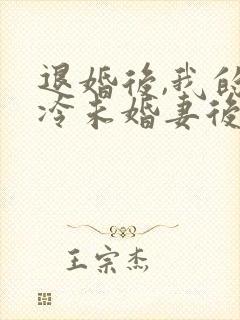 退婚後,我的
冷未婚妻後
王宗杰